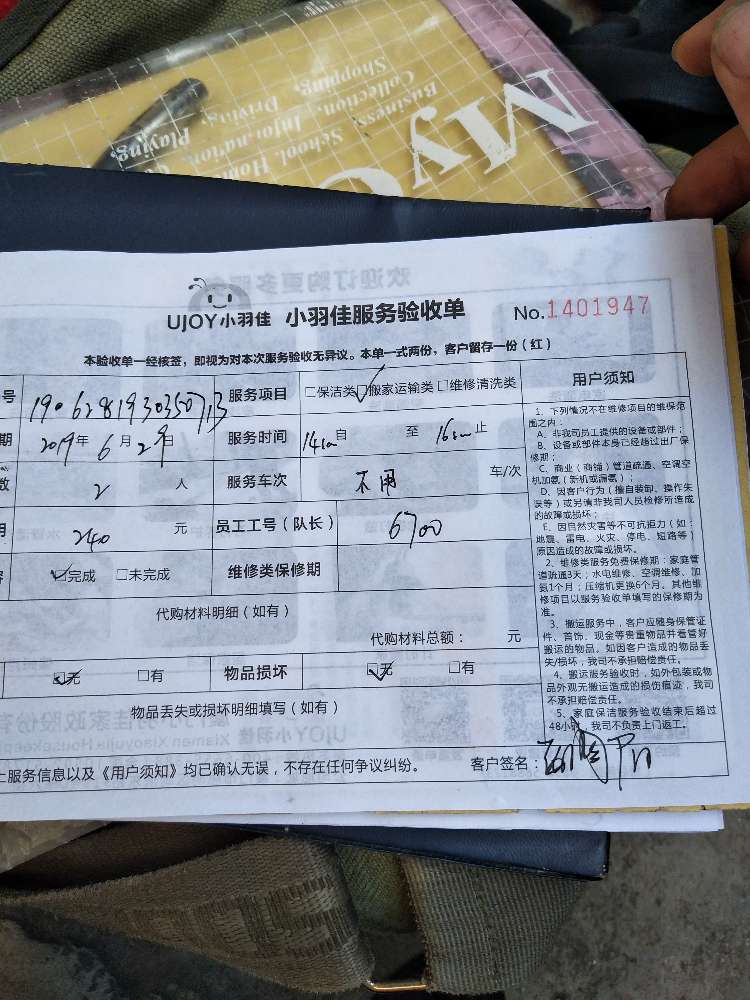 MyC
Business
Collection,
Shopping,
School, Hom
Information,
Driving,
Playing,
欢迎订购更多服
UJOY小羽佳 小羽佳服务验收单 No.1401947
本验收单一经核签，即视为对本次服务验收无异议。本单一式两份，客户留存一份（红）
号 1906281930350713 服务项目 □保洁类 ☑搬家运输类 □维修清洗类
期 2019年6月29日 服务时间 14:00自 至 16:00止
数 2 人 服务车次 不用 车/次
用 240 元 员工工号（队长） 6700
☑完成 □未完成 维修类保修期
代购材料明细（如有）
代购材料总额： 元
☑无 □有 物品损坏 ☑无 □有
物品丢失或损坏明细填写（如有）
上服务信息以及《用户须知》均已确认无误，不存在任何争议纠纷。 客户签名：
用户须知
1、下列情况不在维修项目的维保范
围之内：
A、非我司员工提供的设备或部件；
B、设备或部件本身已经超过出厂保
修期；
C、商业（商铺）管道疏通、空调空
机加氨（新机或漏氨）；
D、因客户行为（擅自装卸、操作失
误等）或另请非我司人员检修所造成
的故障或损坏；
E、因自然灾害等不可抗拒力（如：
地震、雷电、火灾、停电、短路等）
原因造成的故障或损坏。
2、维修类服务免费保修期：家庭管
道疏通3天；水电维修、空调维修、加
氨1个月；压缩机更换6个月。其他维
修项目以服务验收单填写的保修期为
准。
3、搬运服务中，客户应随身保管证
件、首饰、现金等贵重物品并看管好
搬运的物品。如因客户造成的物品丢
失/损坏，我司不承担赔偿责任。
4、搬运服务验收时，如外包装或物
品外观无搬运造成的损伤痕迹，我司
不承担赔偿责任。
5、家庭保洁服务验收结束后超过
48小时，我司不负责上门返工。